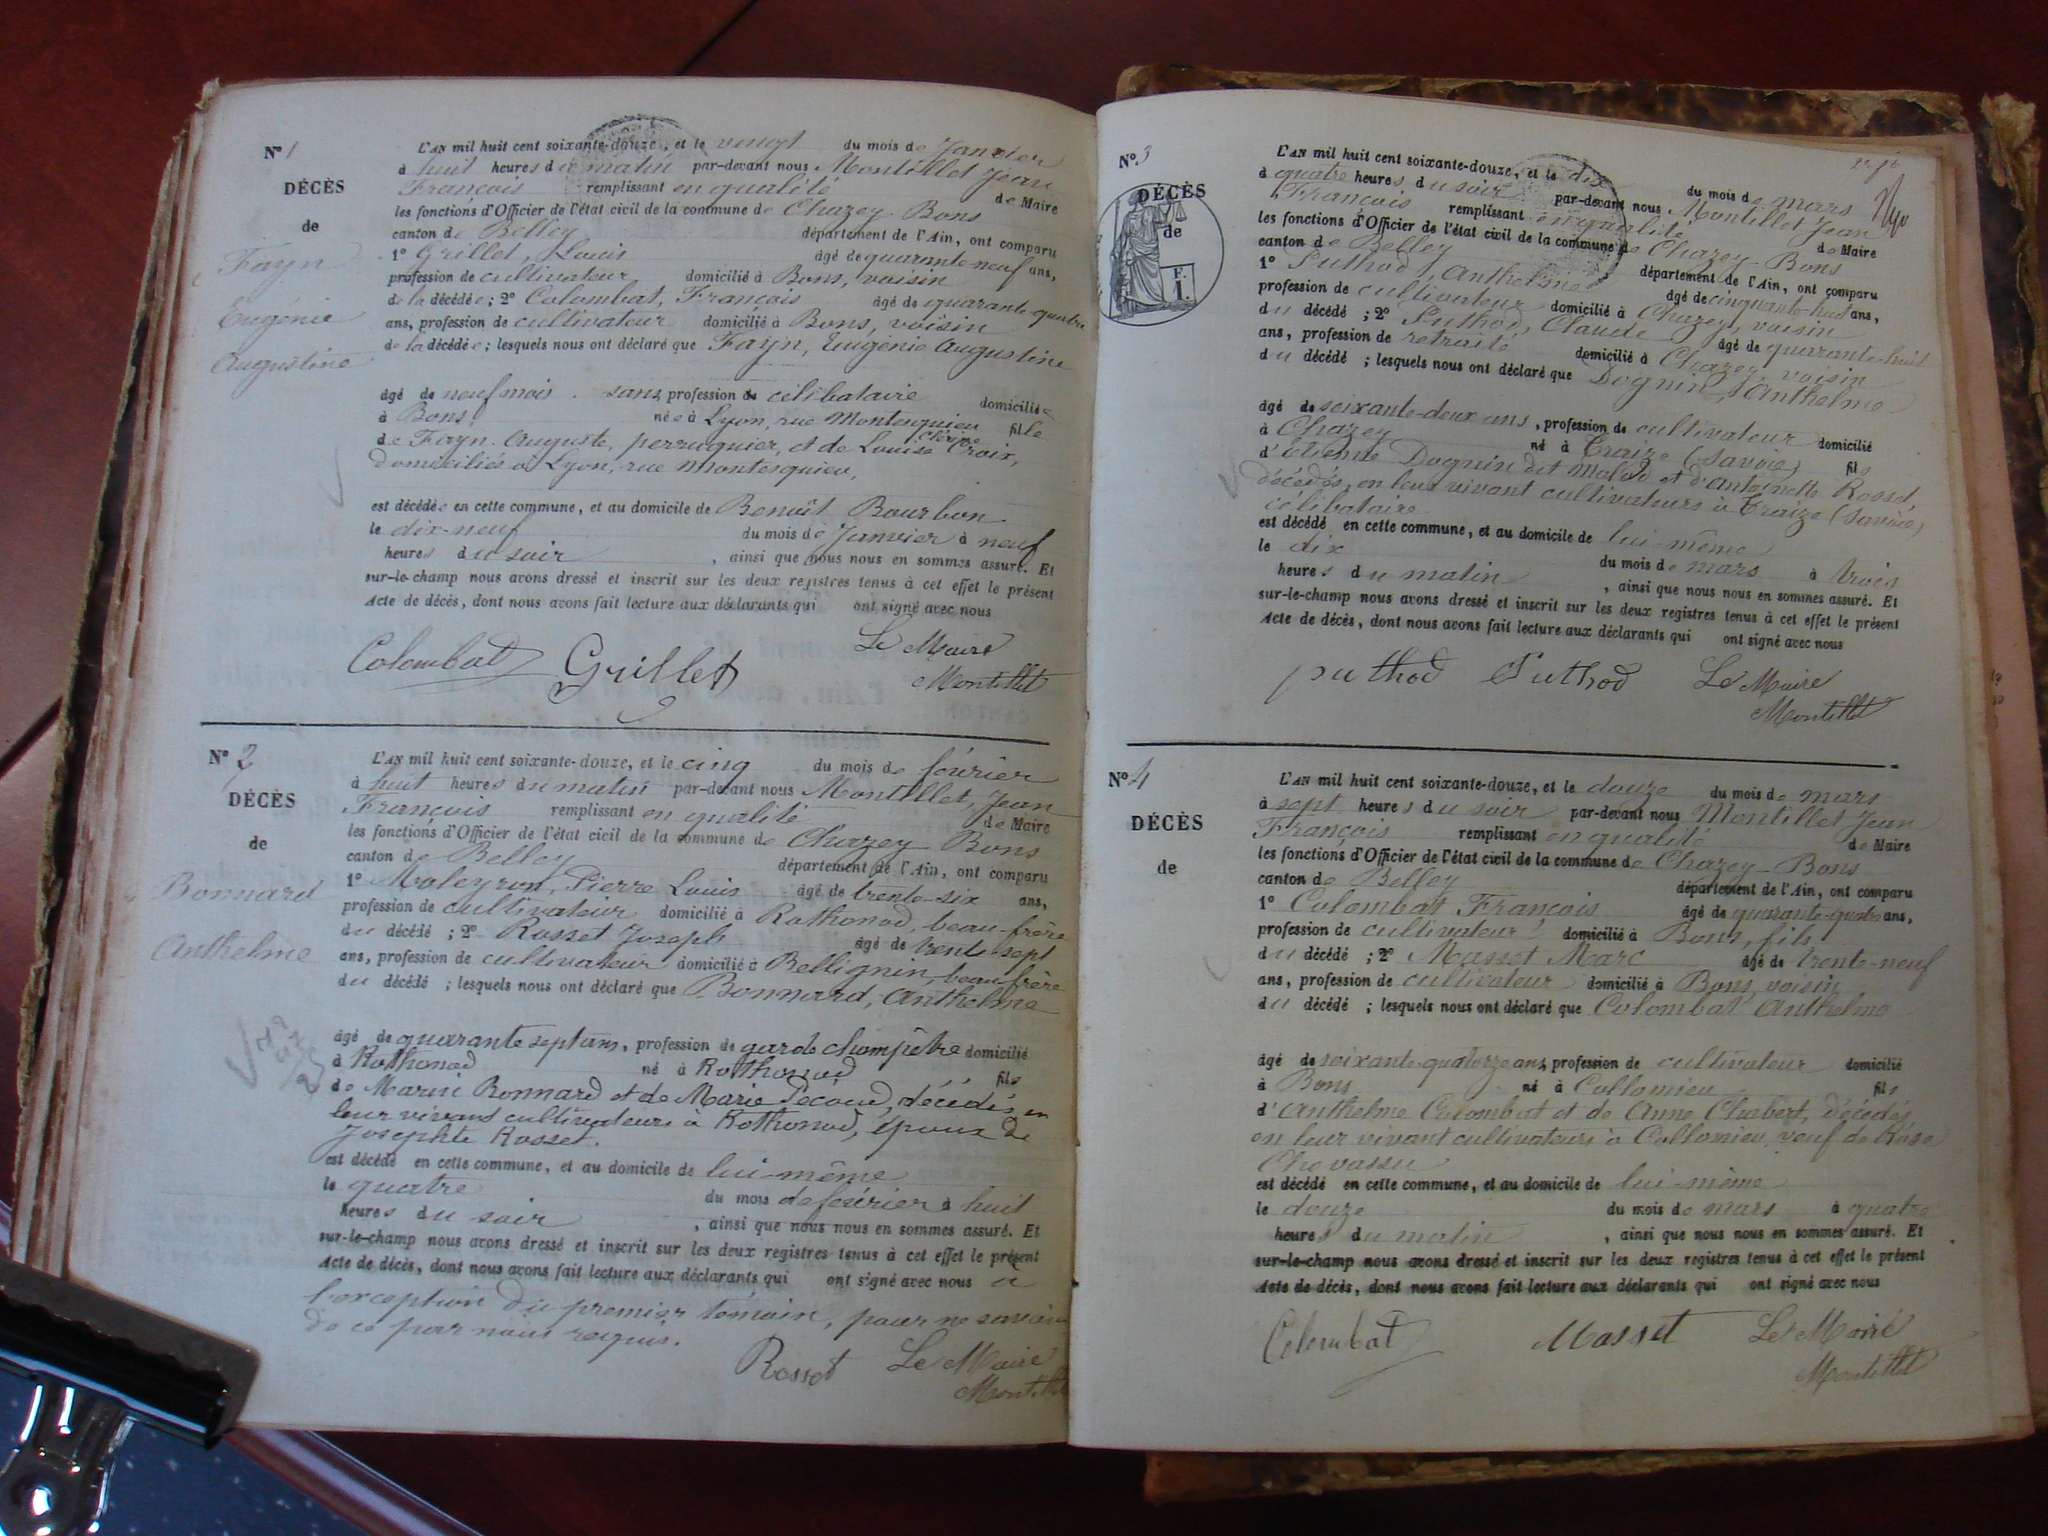 N° 1
DÉCÈS
de
Fayn
Eugénie
Augustine
L'AN mil huit cent soixante-douze, et le vingt du mois de Janvier
à huit heures du matin par-devant nous Montillet Jean
François remplissant en qualité de Maire
les fonctions d'Officier de l'état civil de la commune de Chazey-Bons
canton de Belley département de l'Ain, ont comparu
1° Grillet, Louis âgé de quarante-neuf ans,
profession de cultivateur domicilié à Bons, voisin
de la décédée; 2° Colombat, François âgé de quarante-quatre
ans, profession de cultivateur domicilié à Bons, voisin
de la décédée; lesquels nous ont déclaré que Fayn, Eugénie Augustine
âgé de neuf mois. sans profession de célibataire domiciliée
à Bons, née à Lyon, rue Montesquieu fille
de Fayn Auguste, perruquier, et de Louise Croix,
domiciliés à Lyon, rue Montesquieu,
est décédée en cette commune, et au domicile de Benoît Bourbon
le dix-neuf du mois de Janvier à neuf
heures du soir, ainsi que nous nous en sommes assuré. Et
sur-le-champ nous avons dressé et inscrit sur les deux registres tenus à cet effet le présent
Acte de décès, dont nous avons fait lecture aux déclarants qui ont signé avec nous
Le Maire
Colombat Grillet Montillet
N° 2
DÉCÈS
de
Bonnard
Anthelme
L'AN mil huit cent soixante-douze, et le cinq du mois de février
à huit heures du matin par-devant nous Montillet, Jean
François remplissant en qualité de Maire
les fonctions d'Officier de l'état civil de la commune de Chazey-Bons
canton de Belley département de l'Ain, ont comparu
1° Moleyron, Pierre Louis âgé de trente-six ans,
profession de cultivateur domicilié à Rothonod, beau-frère
du décédé; 2° Rosset Joseph âgé de trente-sept
ans, profession de cultivateur domicilié à Bellignin, beau frère
du décédé; lesquels nous ont déclaré que Bonnard, Anthelme
âgé de quarante sept ans, profession de garde champêtre domicilié
à Rothonod né à Rothonod fils
de Marin Bonnard et de Marie Pecoud, décédés, en
leur vivant cultivateurs à Rothonod, époux de
Josephte Rosset.
est décédé en cette commune, et au domicile de lui-même
le quatre du mois de février à huit
heures du soir, ainsi que nous nous en sommes assuré. Et
sur-le-champ nous avons dressé et inscrit sur les deux registres tenus à cet effet le présent
Acte de décès, dont nous avons fait lecture aux déclarants qui ont signé avec nous à
l'exception du premier témoin, pour ne savoir
de ce par nous requis.
Rosset Le Maire
Montillet
N° 3
DÉCÈS
de
F.
I.
L'AN mil huit cent soixante-douze, et le dix du mois de mars
à quatre heures du soir par-devant nous Montillet Jean
François remplissant en qualité de Maire
les fonctions d'Officier de l'état civil de la commune de Chazey-Bons
canton de Belley département de l'Ain, ont comparu
1° Puthod, Anthelme âgé de cinquante-huit ans,
profession de cultivateur domicilié à Chazey, voisin
du décédé; 2° Puthod, Claude âgé de quarante-huit
ans, profession de retraité domicilié à Chazey, voisin
du décédé; lesquels nous ont déclaré que Dognin, Anthelme
âgé de soixante-deux ans, profession de cultivateur domicilié
à Chazey né à Traize (Savoie) fils
d'Etienne Dognin dit et d'Antoinette Rosset,
décédés, en leur vivant cultivateurs à Traize (Savoie)
célibataire
est décédé en cette commune, et au domicile de lui-même
le dix du mois de mars à trois
heures du matin, ainsi que nous nous en sommes assuré. Et
sur-le-champ nous avons dressé et inscrit sur les deux registres tenus à cet effet le présent
Acte de décès, dont nous avons fait lecture aux déclarants qui ont signé avec nous
puthod Puthod Le Maire
Montillet
N° 4
DÉCÈS
de
L'AN mil huit cent soixante-douze, et le douze du mois de mars
à sept heures du soir par-devant nous Montillet Jean
François remplissant en qualité de Maire
les fonctions d'Officier de l'état civil de la commune de Chazey-Bons
canton de Belley département de l'Ain, ont comparu
1° Colombat François âgé de quarante-quatre ans,
profession de cultivateur domicilié à Bons, fils
du décédé; 2° Masset Marc âgé de trente-neuf
ans, profession de cultivateur domicilié à Bons, voisin
du décédé; lesquels nous ont déclaré que Colombat Anthelme
âgé de soixante-quatorze ans, profession de cultivateur domicilié
à Bons né à Collomieu fils
d'Anthelme Colombat et de Anne Chabert, décédés
en leur vivant cultivateurs à Collomieu, veuf de Rose
Chovassu
est décédé en cette commune, et au domicile de lui-même
le douze du mois de mars à quatre
heures du matin, ainsi que nous nous en sommes assuré. Et
sur-le-champ nous avons dressé et inscrit sur les deux registres tenus à cet effet le présent
Acte de décès, dont nous avons fait lecture aux déclarants qui ont signé avec nous
Colombat Masset Le Maire
Montillet